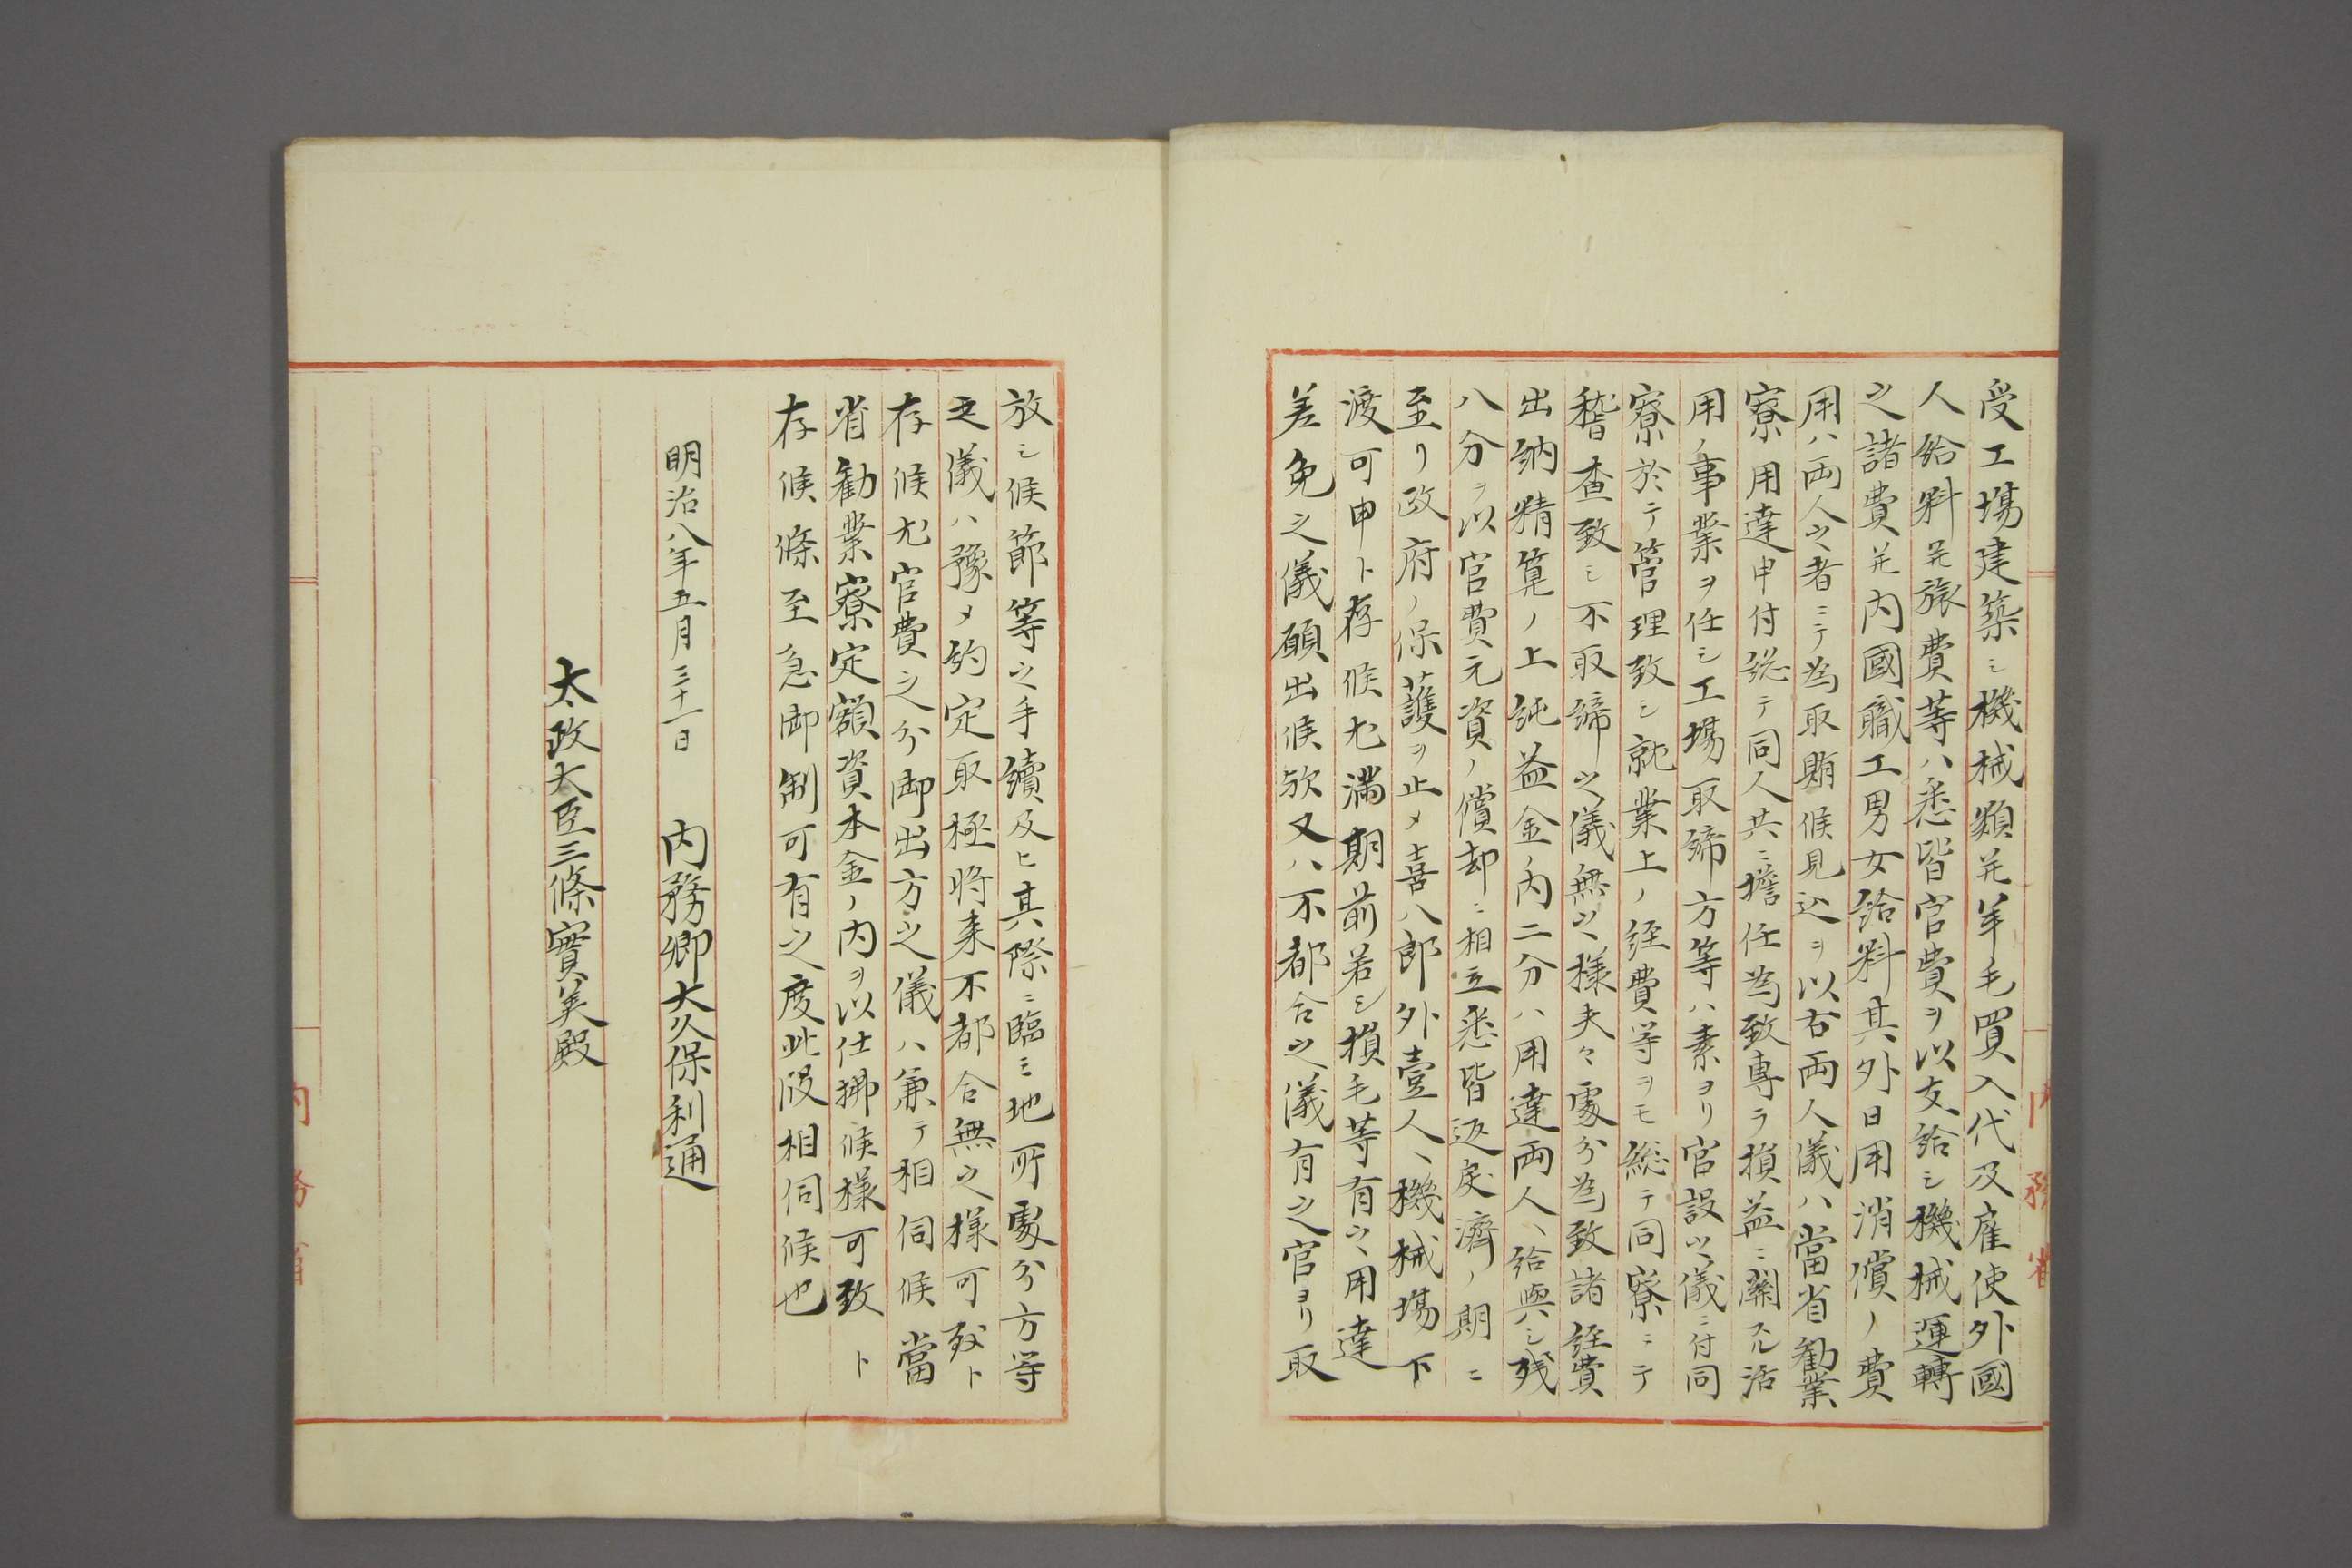 受工場建築シ機械類并羊毛買入代及雇使外國
人給料并旅費等ハ悉皆官費ヲ以支給シ機械運轉
之諸費并内國職工男女給料其外日用消償ノ費
用ハ両人之者ニテ為取賄候見込ヲ以右両人儀ハ當省勧業
寮用達申付総テ同人共ニ擔任為致専ラ損益ニ關スル活
用ノ事業ヲ任シ工場取締方等ハ素ヨリ官設之儀ニ付同
寮於テ管理致シ就業上ノ經費等ヲモ総テ同寮ニテ
稽査致シ不取締之儀無之様夫々處分為致諸経費
出納精算ノ上純益金ノ内二分ハ用達両人ヘ給與シ残
八分ヲ以官費元資ノ償却ニ相立悉皆返戻濟ノ期ニ
至リ政府ノ保護ヲ止メ喜八郎外壹人ヘ機械場下
渡可申ト存候尤満期前若シ損毛等有之用達
差免之儀願出候欤又ハ不都合之儀有之官ヨリ取
内務省
放シ候節等之手續及ヒ其際ニ臨ミ地所處分方等
之儀ハ豫メ約定取極将来不都合無之様可致ト
存候尤官費之分御出方之儀ハ兼テ相伺候當
省勧業寮定額資本金ノ内ヲ以仕拂候様可致ト
存候條至急御制可有之度此段相伺候也
明治八年五月三十一日　内務卿大久保利通
太政大臣三條實美殿
内務省